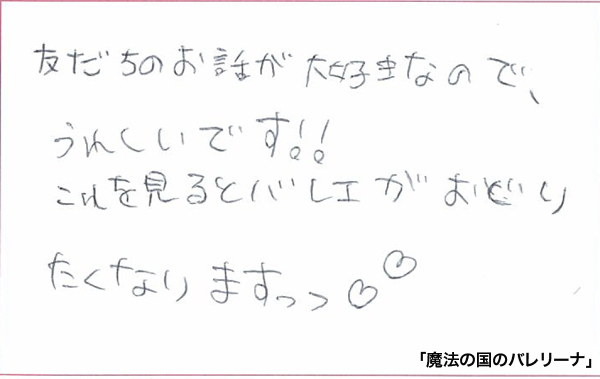 友だちのお話が大好きなので、
うれしいです!!
これを見るとバレエがおどり
たくなりますっっ♡♡
「魔法の国のバレリーナ」